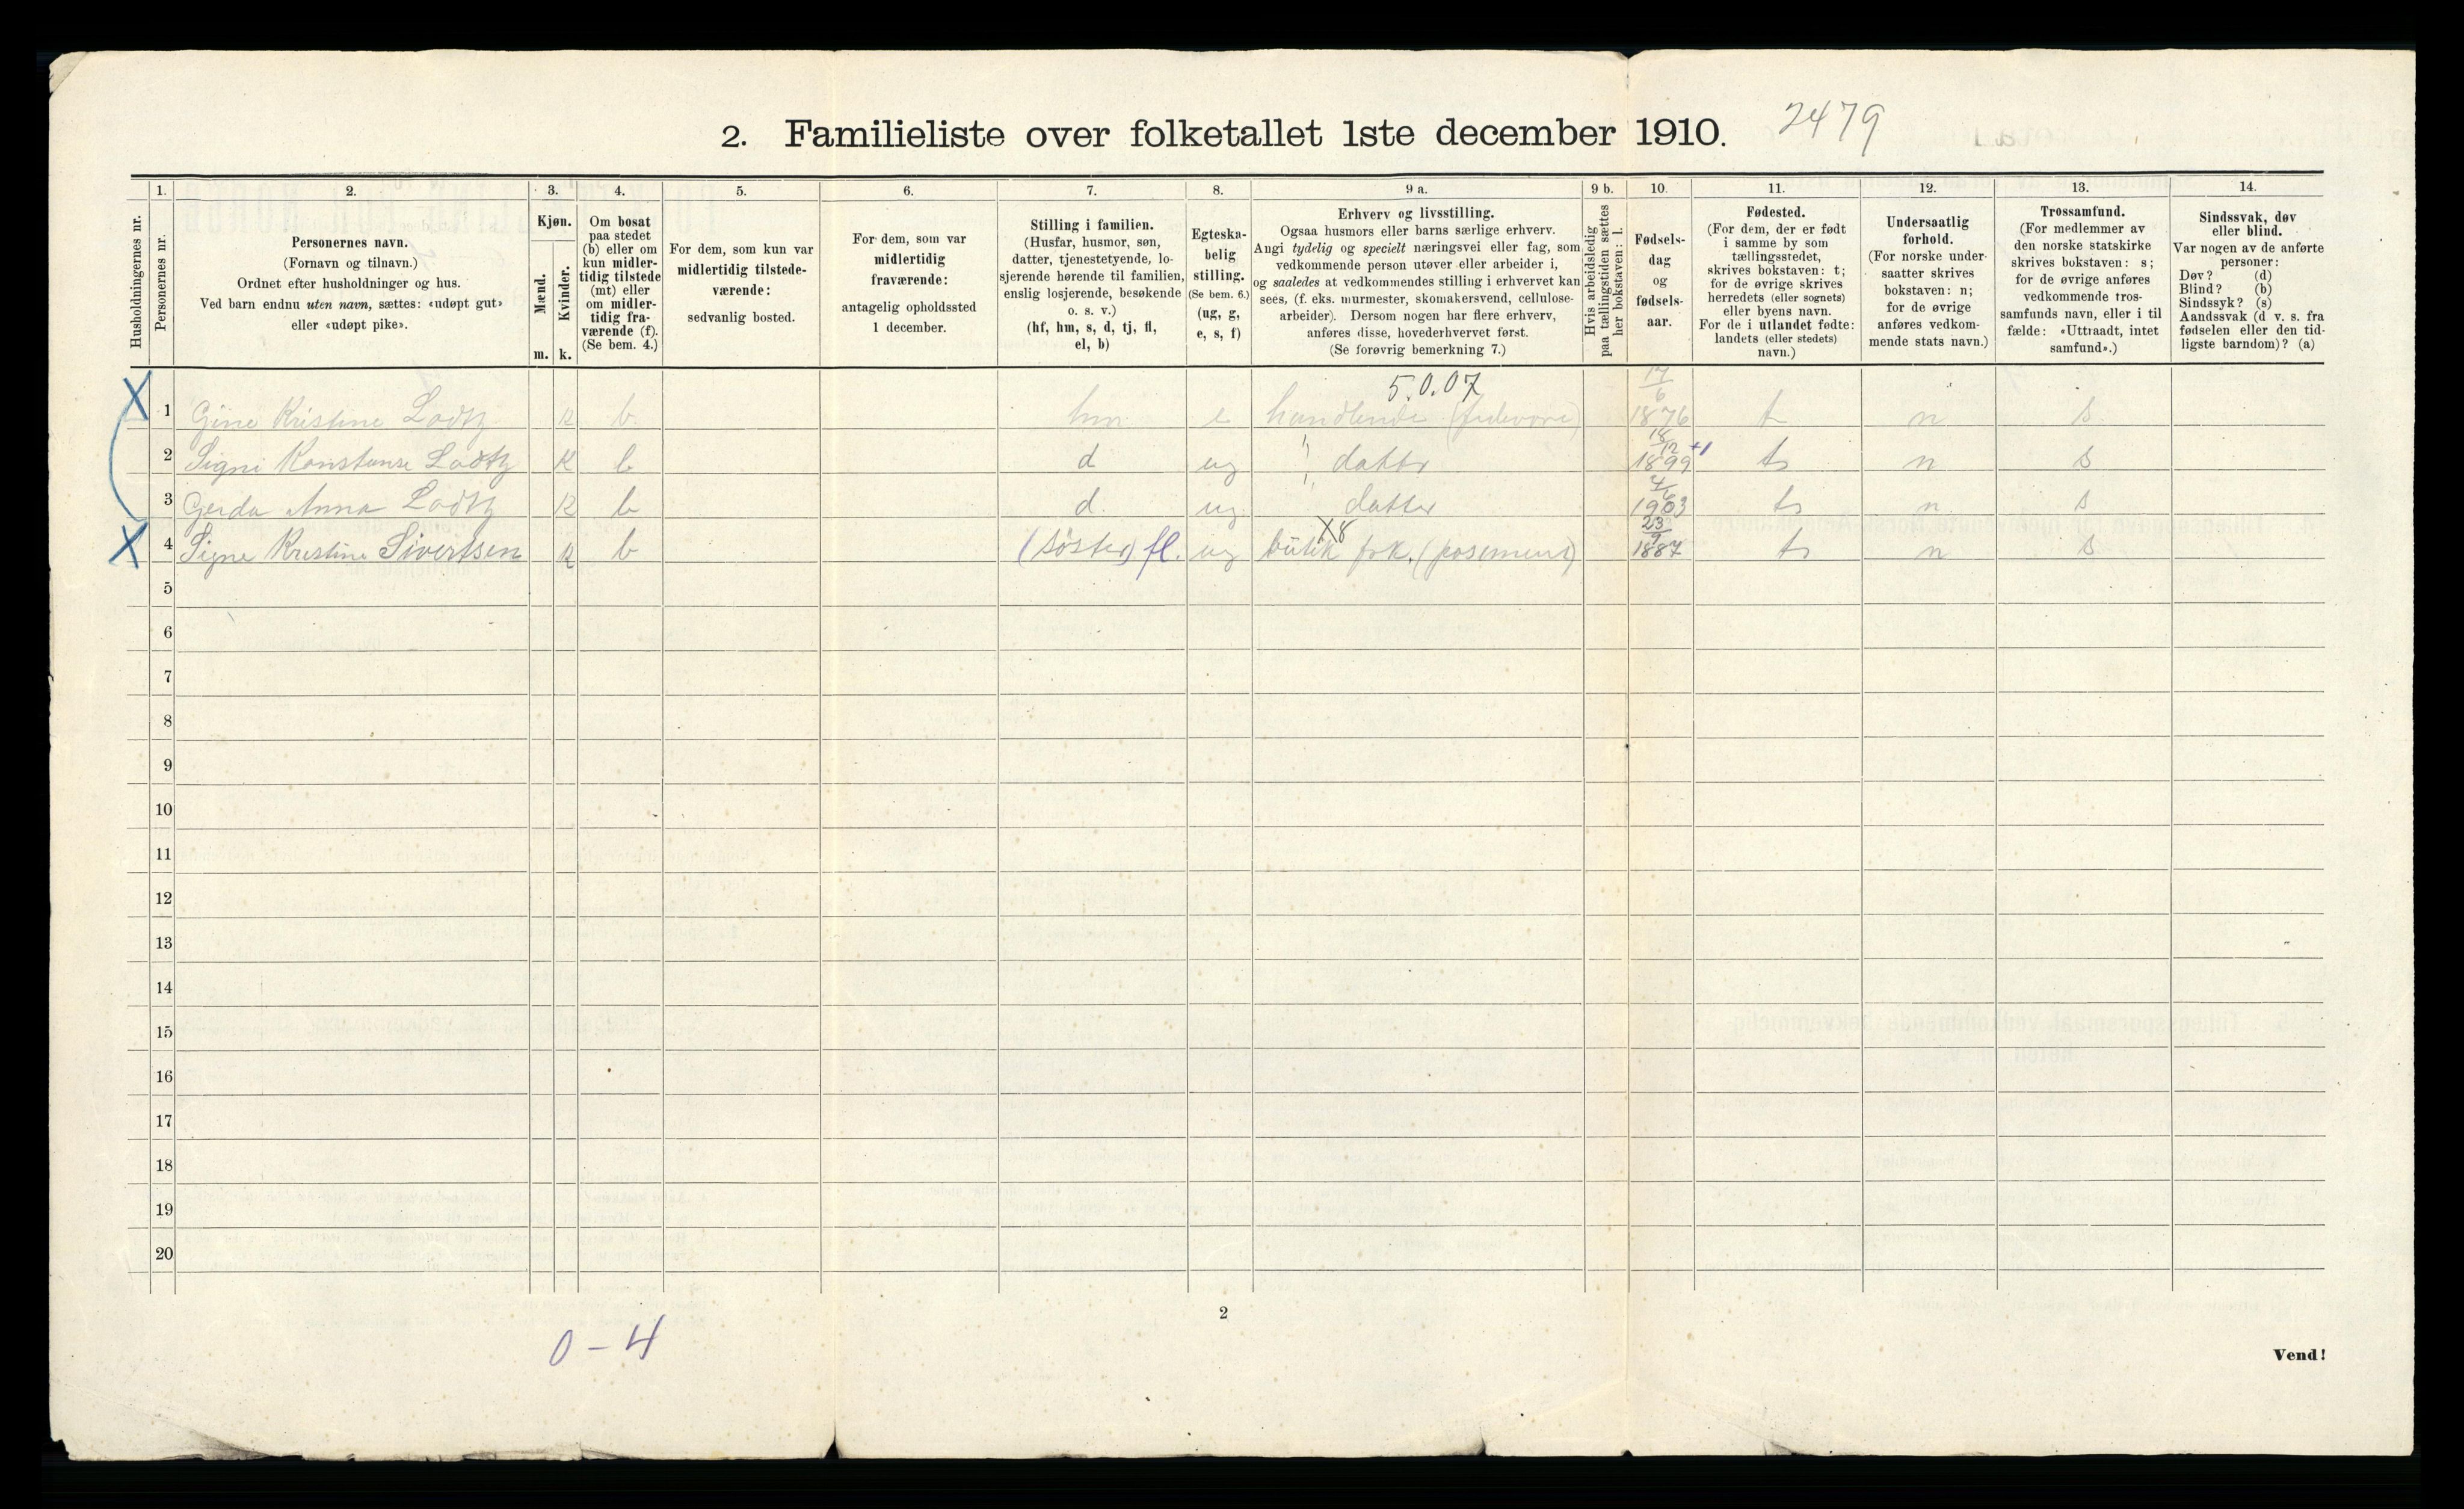 2. Familieliste over folketallet 1ste december 1910. 2479
1. 2. 3. 4. 5. 6. 7. 8. 9 a. 9 b. 10. 11. 12. 13. 14.
Husholdningernes nr.
Personernes nr.
Personernes navn.
(Fornavn og tilnavn.)
Ordnet efter husholdninger og hus.
Ved barn endnu uten navn, sættes: «udøpt gut»
eller «udøpt pike».
Kjøn.
Mænd.
Kvinder.
m. k.
Om bosat
paa stedet
(b) eller om
kun midler-
tidig tilstede
(mt) eller
om midler-
tidig fra-
værende (f).
(Se bem. 4.)
For dem, som kun var
midlertidig tilstede-
værende:
sedvanlig bosted.
For dem, som var
midlertidig
fraværende:
antagelig opholdssted
1 december.
Stilling i familien.
(Husfar, husmor, søn,
datter, tjenestetyende, lo-
sjerende hørende til familien,
enslig losjerende, besøkende
o. s. v.)
(hf, hm, s, d, tj, fl,
el, b)
Egteska-
belig
stilling.
(Se bem. 6.)
(ug, g,
e, s, f)
Erhverv og livsstilling.
Ogsaa husmors eller barns særlige erhverv.
Angi tydelig og specielt næringsvei eller fag, som
vedkommende person utøver eller arbeider i,
og saaledes at vedkommendes stilling i erhvervet kan
sees, (f. eks. murmester, skomakersvend, cellulose-
arbeider). Dersom nogen har flere erhverv,
anføres disse, hovederhvervet først.
(Se forøvrig bemerkning 7.)
Hvis arbeidsledig
paa tællingstiden sættes
her bokstaven: l.
Fødsels-
dag
og
fødsels-
aar.
Fødested.
(For dem, der er født
i samme by som
tællingsstedet,
skrives bokstaven: t;
for de øvrige skrives
herredets (eller sognets)
eller byens navn.
For de i utlandet fødte:
landets (eller stedets)
navn.)
Undersaatlig
forhold.
(For norske under-
saatter skrives
bokstaven: n;
for de øvrige
anføres vedkom-
mende stats navn.)
Trossamfund.
(For medlemmer av
den norske statskirke
skrives bokstaven: s;
for de øvrige anføres
vedkommende tros-
samfunds navn, eller i til
fælde: «Uttraadt, intet
samfund».)
Sindssvak, døv
eller blind.
Var nogen av de anførte
personer:
Døv? (d)
Blind? (b)
Sindssyk? (s)
Aandssvak (d v. s. fra
fødselen eller den tid-
ligste barndom)? (a)
5.0.07
X 1 Gine Kristine Lodtz k b hm e handlende (fedevare) 17/6 1876 t n s
2 Signi Konstanse Lodtz k b d ug " datter 18/12 1899 +1 t n s
3 Gerda Anna Lodtz k b d. ug. " datter 4/6 1903 t n s
X8
X 4 Signe Kristine Sivertsen k b (søster) fl. ug butik frk. (posement) 23/9 1887 t n s
5
6
7
8
9
10
11
12
13
14
15
16
17
18
19
20
2
0 - 4
Vend!